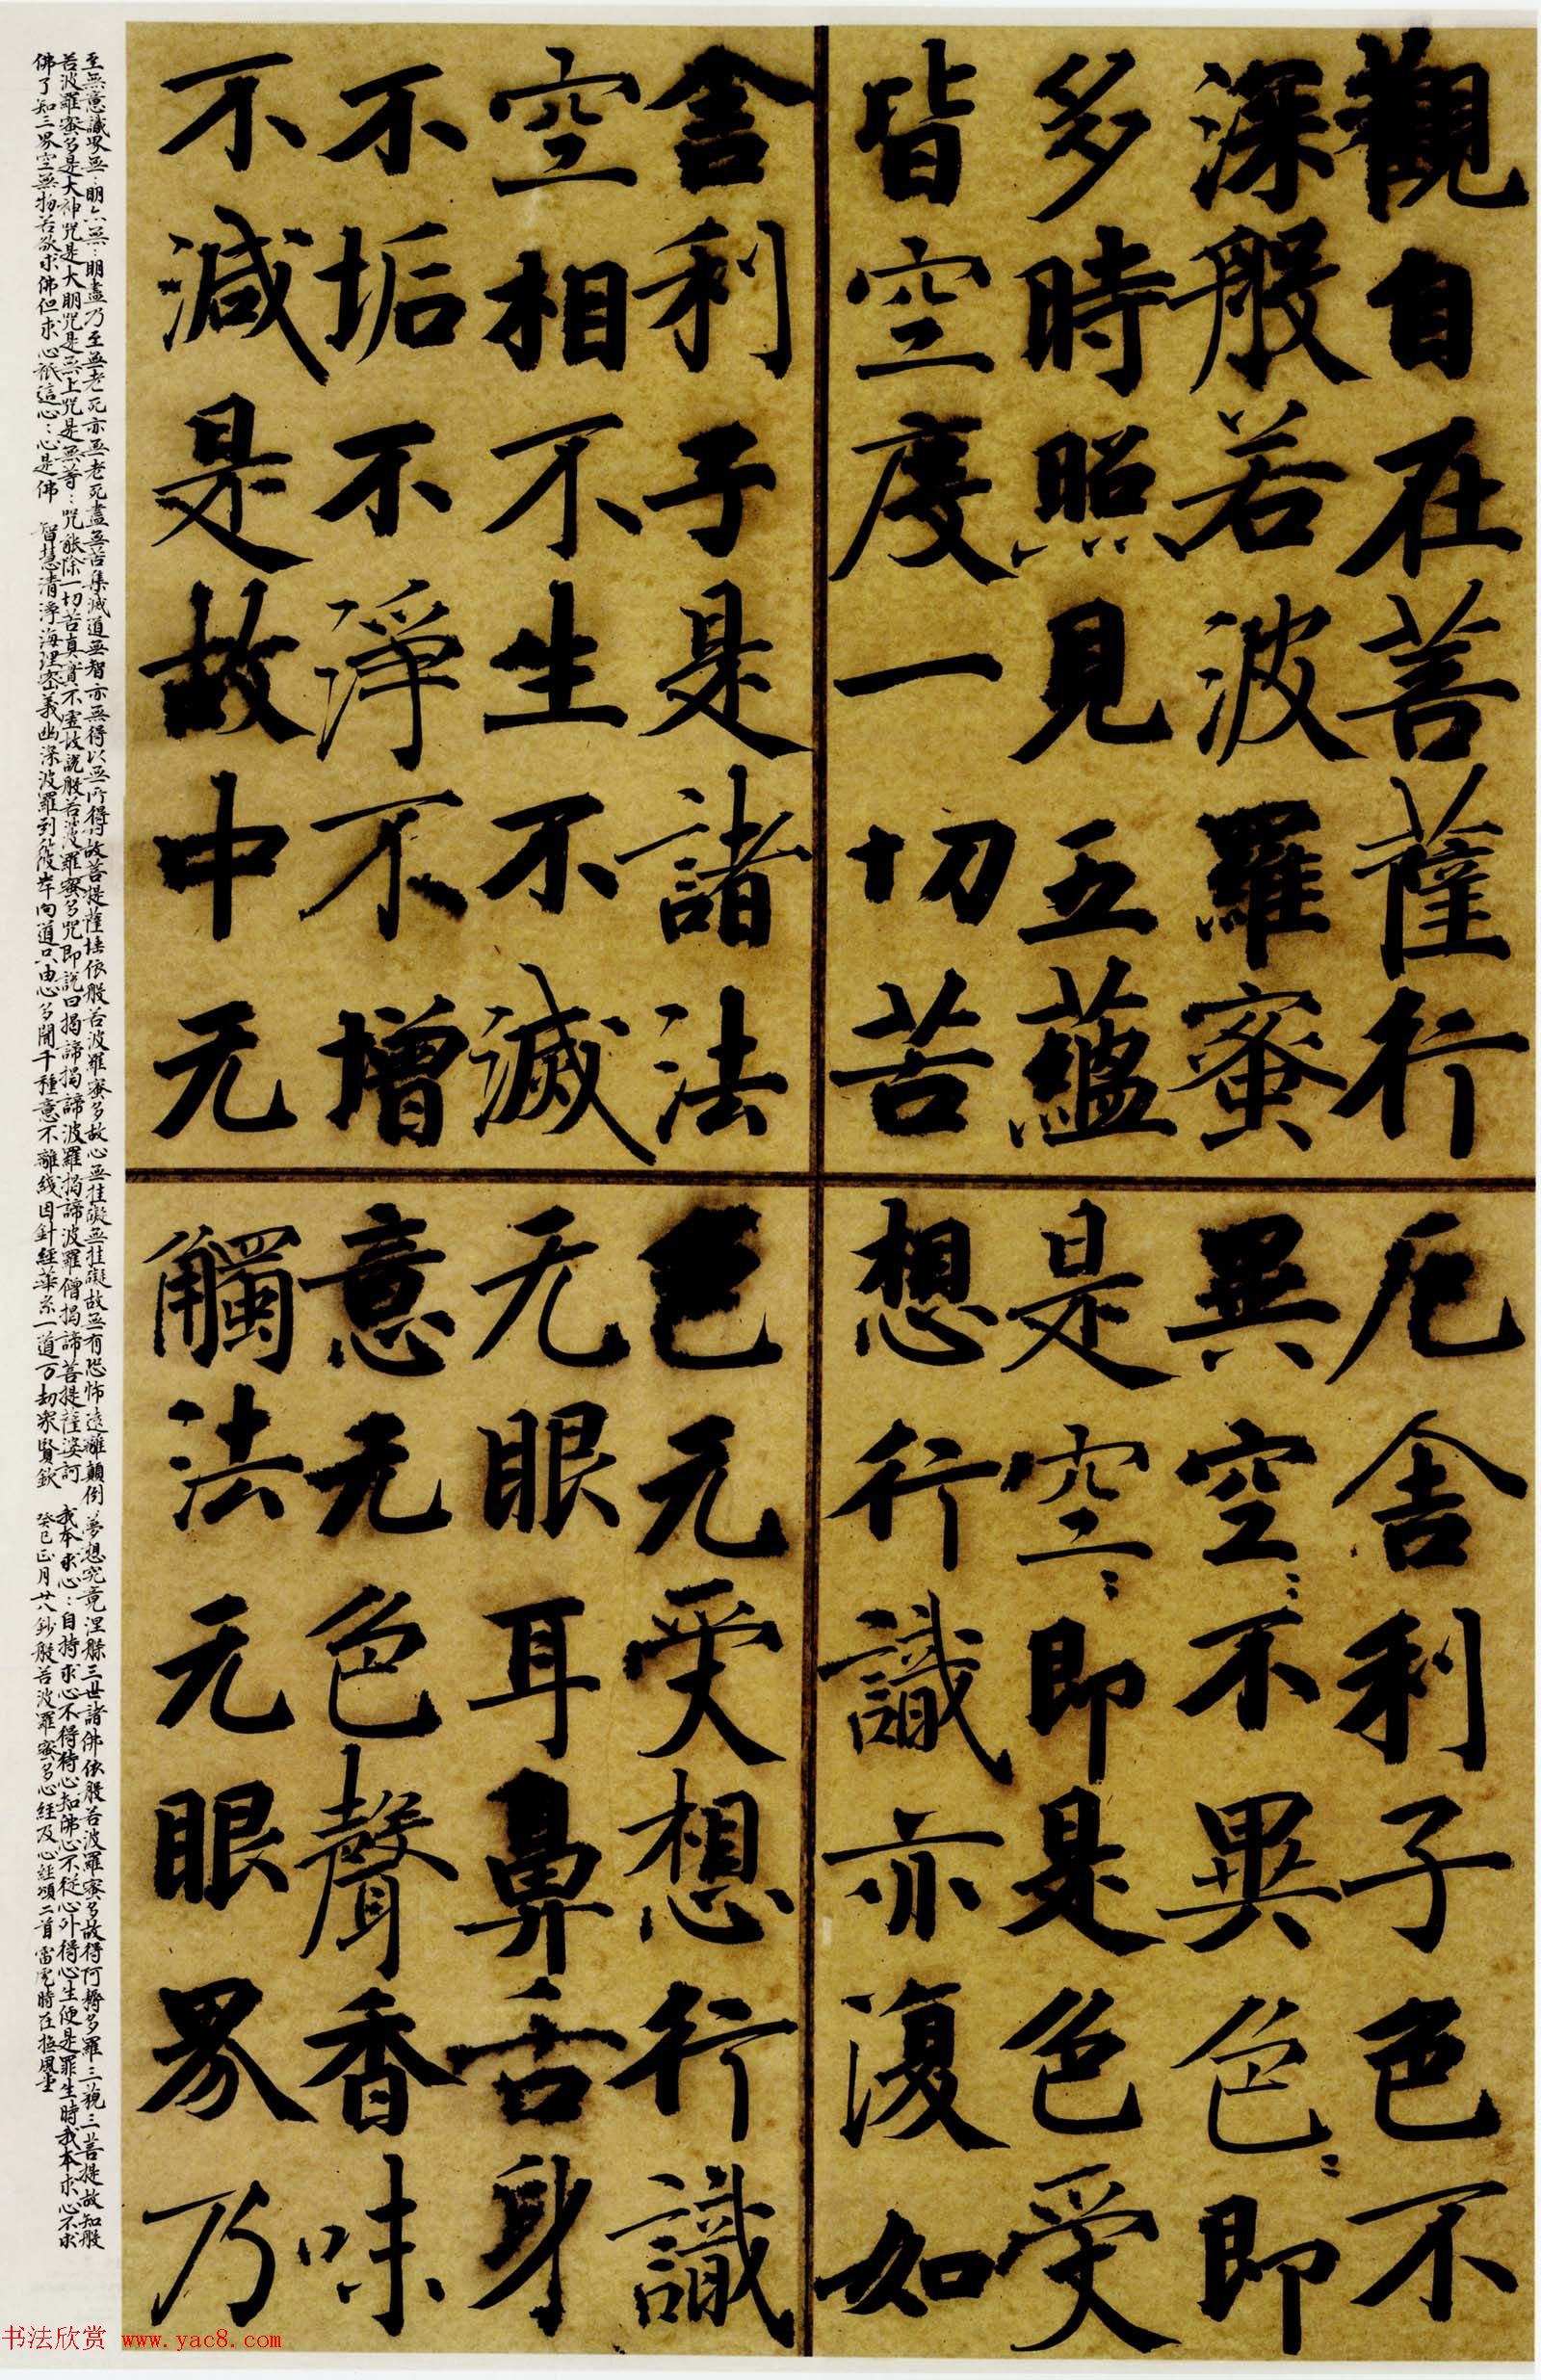 觀自在菩薩行
深般若波羅蜜
多時照見五蘊
皆空度一切苦
厄舍利子色不
異空〻不異色〻即
是空〻即是色受
想行識亦復如
舍利子是諸法
空相不生不滅
不垢不淨不增
不減是故中无
色无受想行識
无眼耳鼻舌身
意无色聲香味
觸法无眼界乃
至無意識界無〻明亦無〻明盡乃至無老死亦無老死盡無苦集滅道無智亦無得以無所得故菩提薩埵依般若波羅蜜多故心無挂礙無挂礙故無有恐怖遠離顛倒夢想究竟涅槃三世諸佛依般若波羅蜜多故得阿耨多羅三藐三菩提故知般
若波羅蜜多是大神咒是大明咒是無上咒是無等〻咒能除一切苦真實不虛故說般若波羅蜜多咒即說曰揭諦揭諦波羅揭諦波羅僧揭諦菩提薩婆訶 我本求心〻自持求心不得待心知佛心不從心外得心生便是罪生時我本求心不求
佛了知三界空無物若欲求佛但求心祇這心〻心是佛 智慧清淨海理密義幽深波羅到彼岸向道只由心多聞千種意不離綫因針經華糸一道万劫衆賢欽 癸巳正月廿八鈔般若波羅蜜多心經及心經頌二首 時在撫風堂
书法欣赏 www.yac8.com